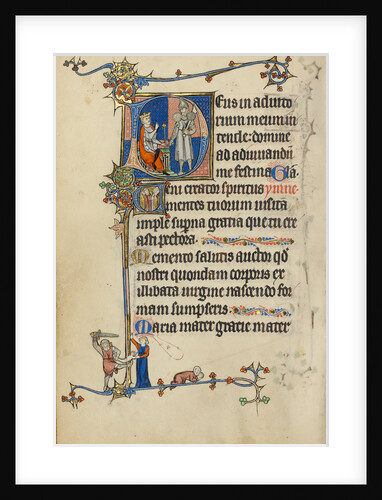 Deus in adiuto
rium meum in
tende: domine
ad adiuvandum
me festina Gla
Veni creator spiritus ymne
mentes tuorum visita
imple superna gratia que tu cre
asti pectora.
Memento salutis auctor qd
nostri quondam corporis ex
illibata virgine nascendo for
mam sumpseris.
Maria mater gracie mater